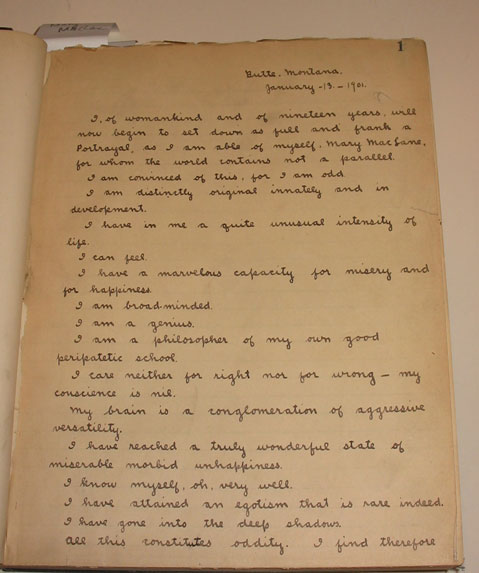 1
Butte, Montana.
January -13.- 1901.
I, of womankind and of nineteen years, will
now begin to set down as full and frank a
Portrayal, as I am able of myself, Mary MacLane,
for whom the world contains not a parallel.
I am convinced of this, for I am odd.
I am distinctly original innately and in
development.
I have in me a quite unusual intensity of
life.
I can feel.
I have a marvelous capacity for misery and
for happiness.
I am broad-minded.
I am a genius.
I am a philosopher of my own good
peripatetic school.
I care neither for right nor for wrong — my
conscience is nil.
My brain is a conglomeration of aggressive
versatility.
I have reached a truly wonderful state of
miserable morbid unhappiness.
I know myself, oh, very well.
I have attained an egotism that is rare indeed.
I have gone into the deep shadows.
All this constitutes oddity. I find therefore